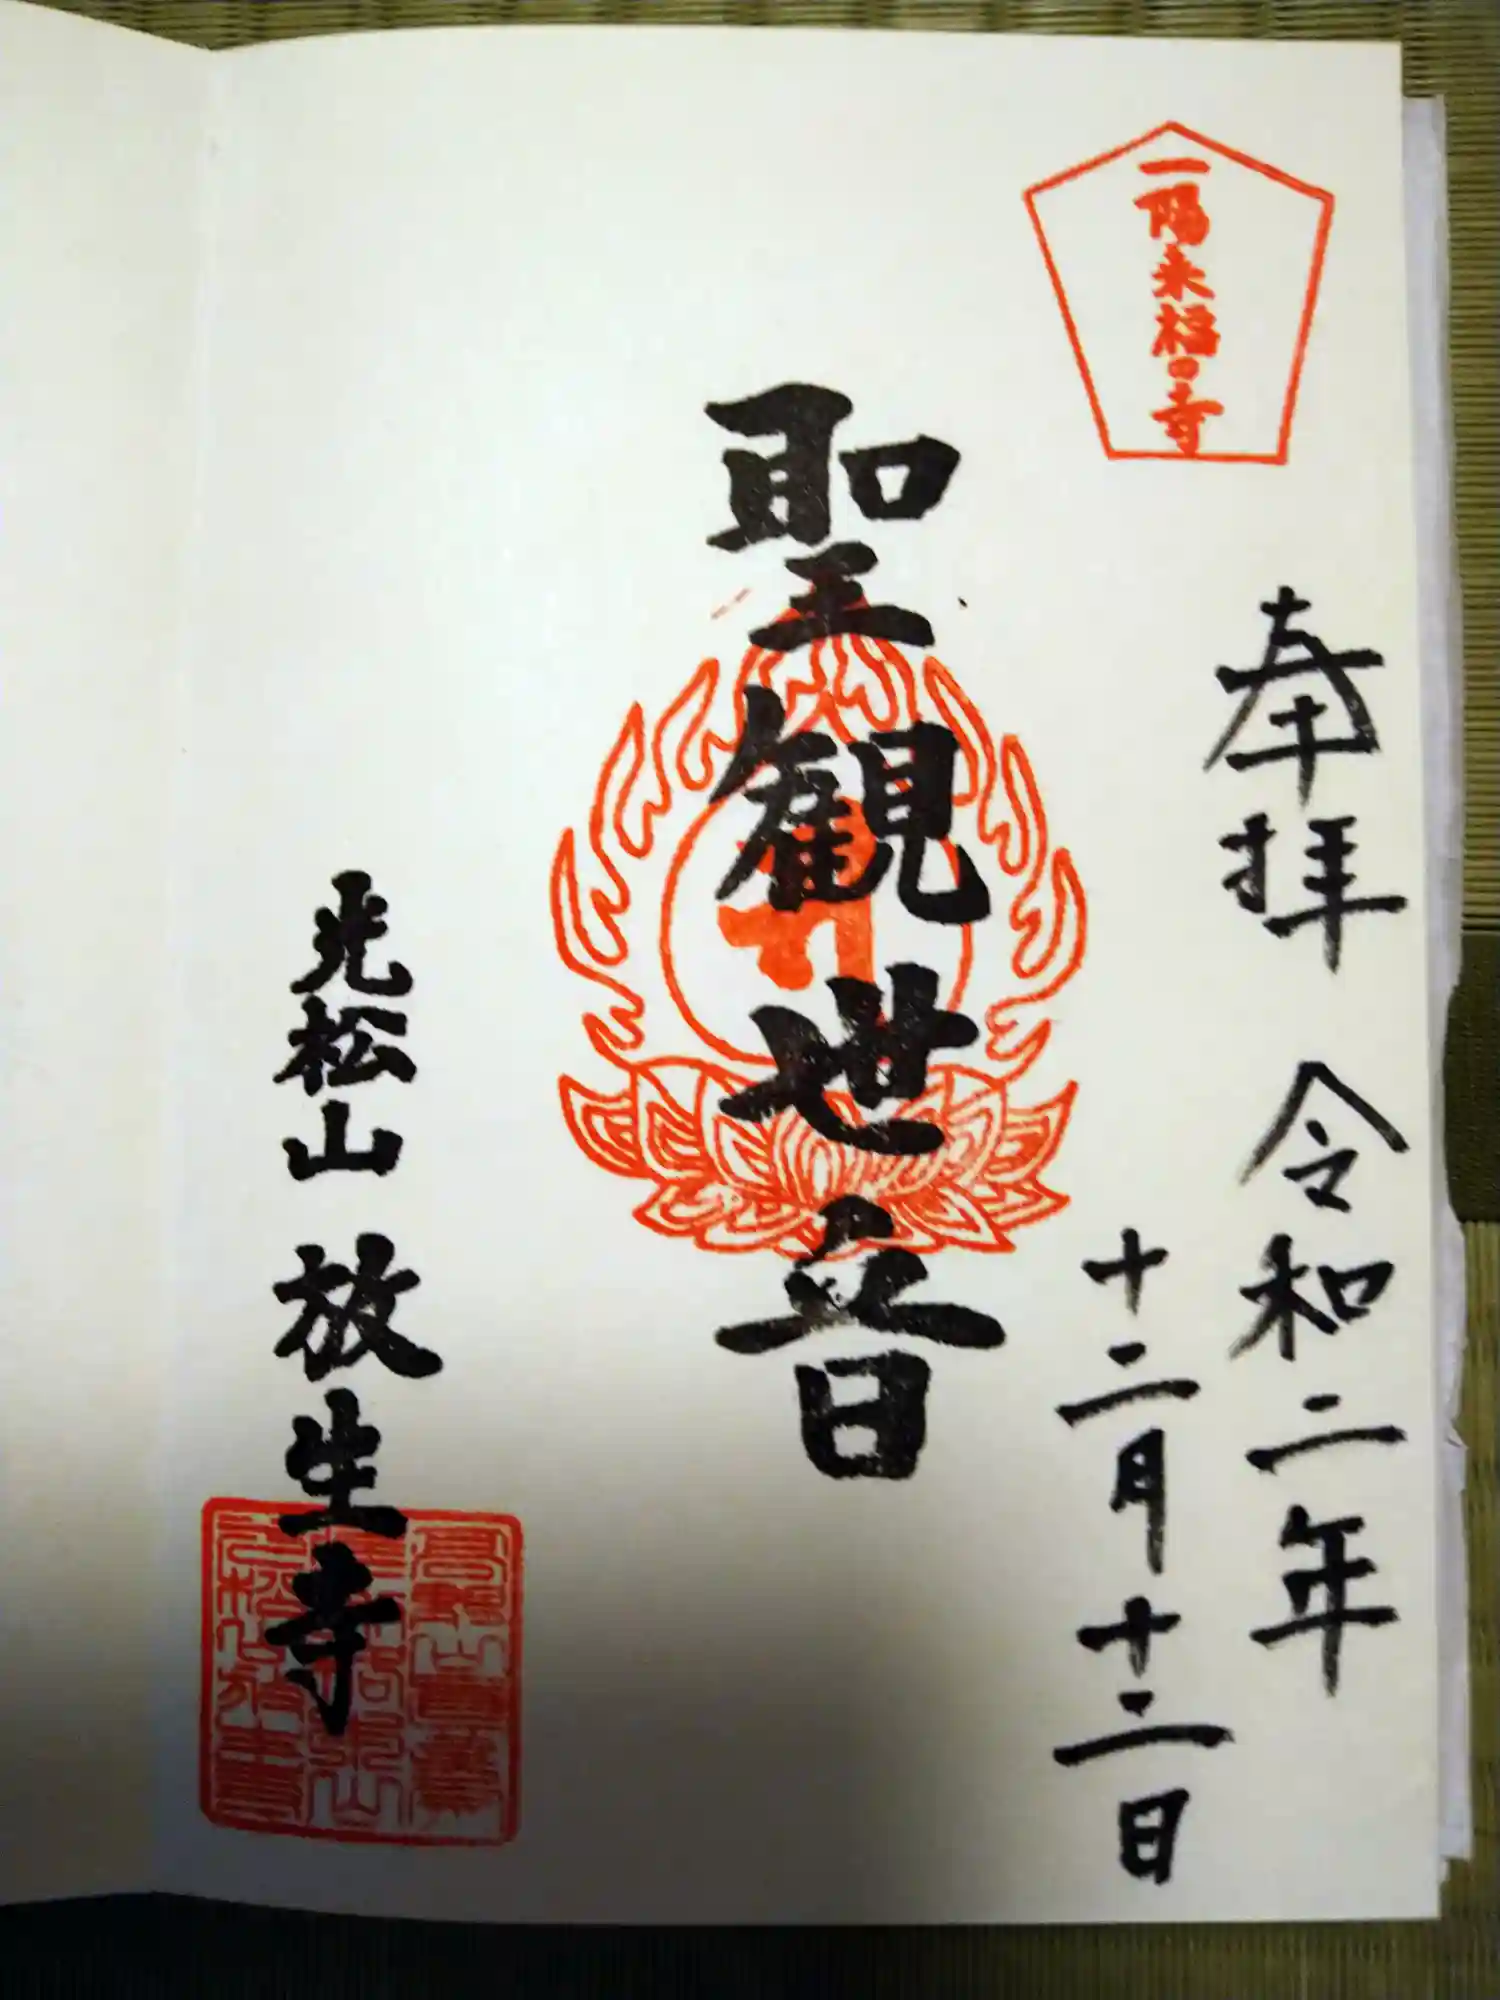 一陽来福の寺
奉拝 令和二年
十二月十二日
聖観世音
光松山 放生寺